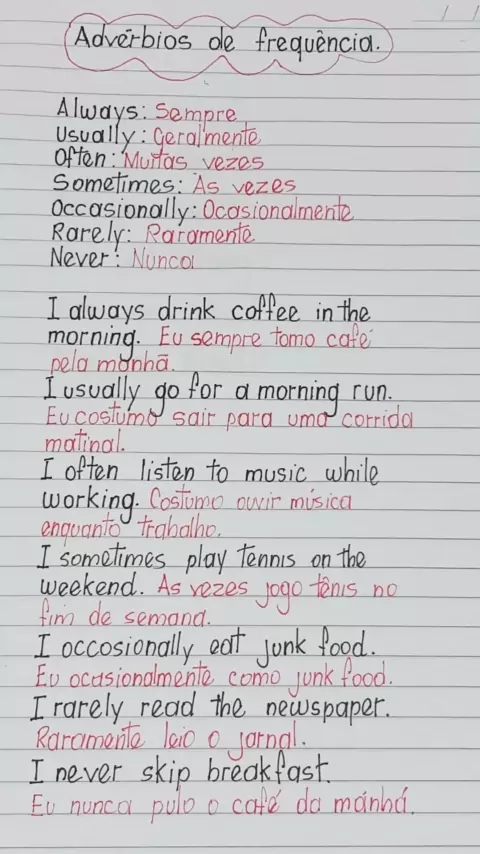 Advérbios de frequência.
Always: Sempre
Usually: Geralmente
Often: Muitas vezes
Sometimes: Às vezes
Occasionally: Ocasionalmente
Rarely: Raramente
Never: Nunca
I always drink coffee in the
morning. Eu sempre tomo café
pela manhã.
I usually go for a morning run.
Eu costumo sair para uma corrida
matinal.
I often listen to music while
working. Costumo ouvir música
enquanto trabalho.
I sometimes play tennis on the
weekend. Às vezes jogo tênis no
fim de semana.
I occosionally eat junk food.
Eu ocasionalmente como junk food.
I rarely read the newspaper.
Raramente leio o jornal.
I never skip breakfast.
Eu nunca pulo o café da mánhá.